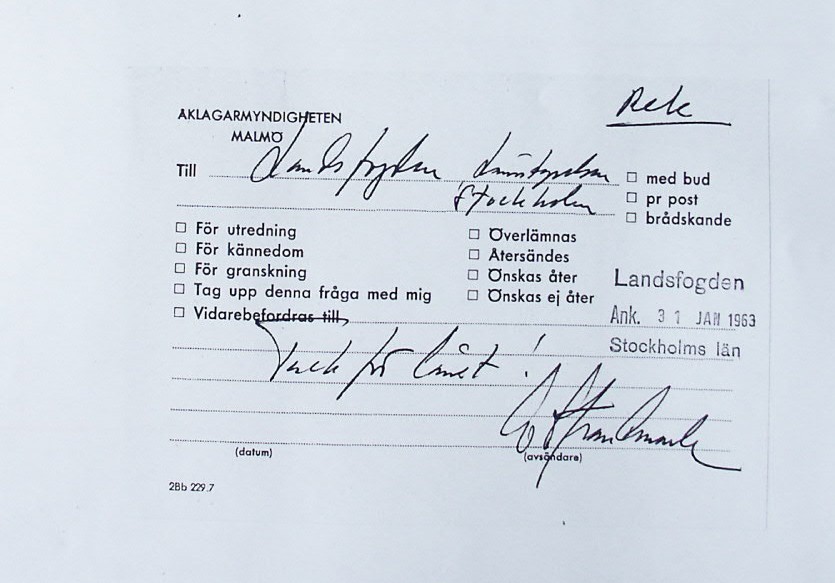 Rek
ÅKLAGARMYNDIGHETEN
MALMÖ
Till Landsfogden
Stockholm
☐ med bud
☐ pr post
☐ brådskande
☐ För utredning
☐ För kännedom
☐ För granskning
☐ Tag upp denna fråga med mig
☐ Vidarebefordras till,
☐ Överlämnas
☐ Återsändes
☐ Önskas åter
☐ Önskas ej åter
Landsfogden
Ank. 31 JAN 1963
Stockholms län
Tack för lånet!
(datum)
(avsändare)
2Bb 229.7